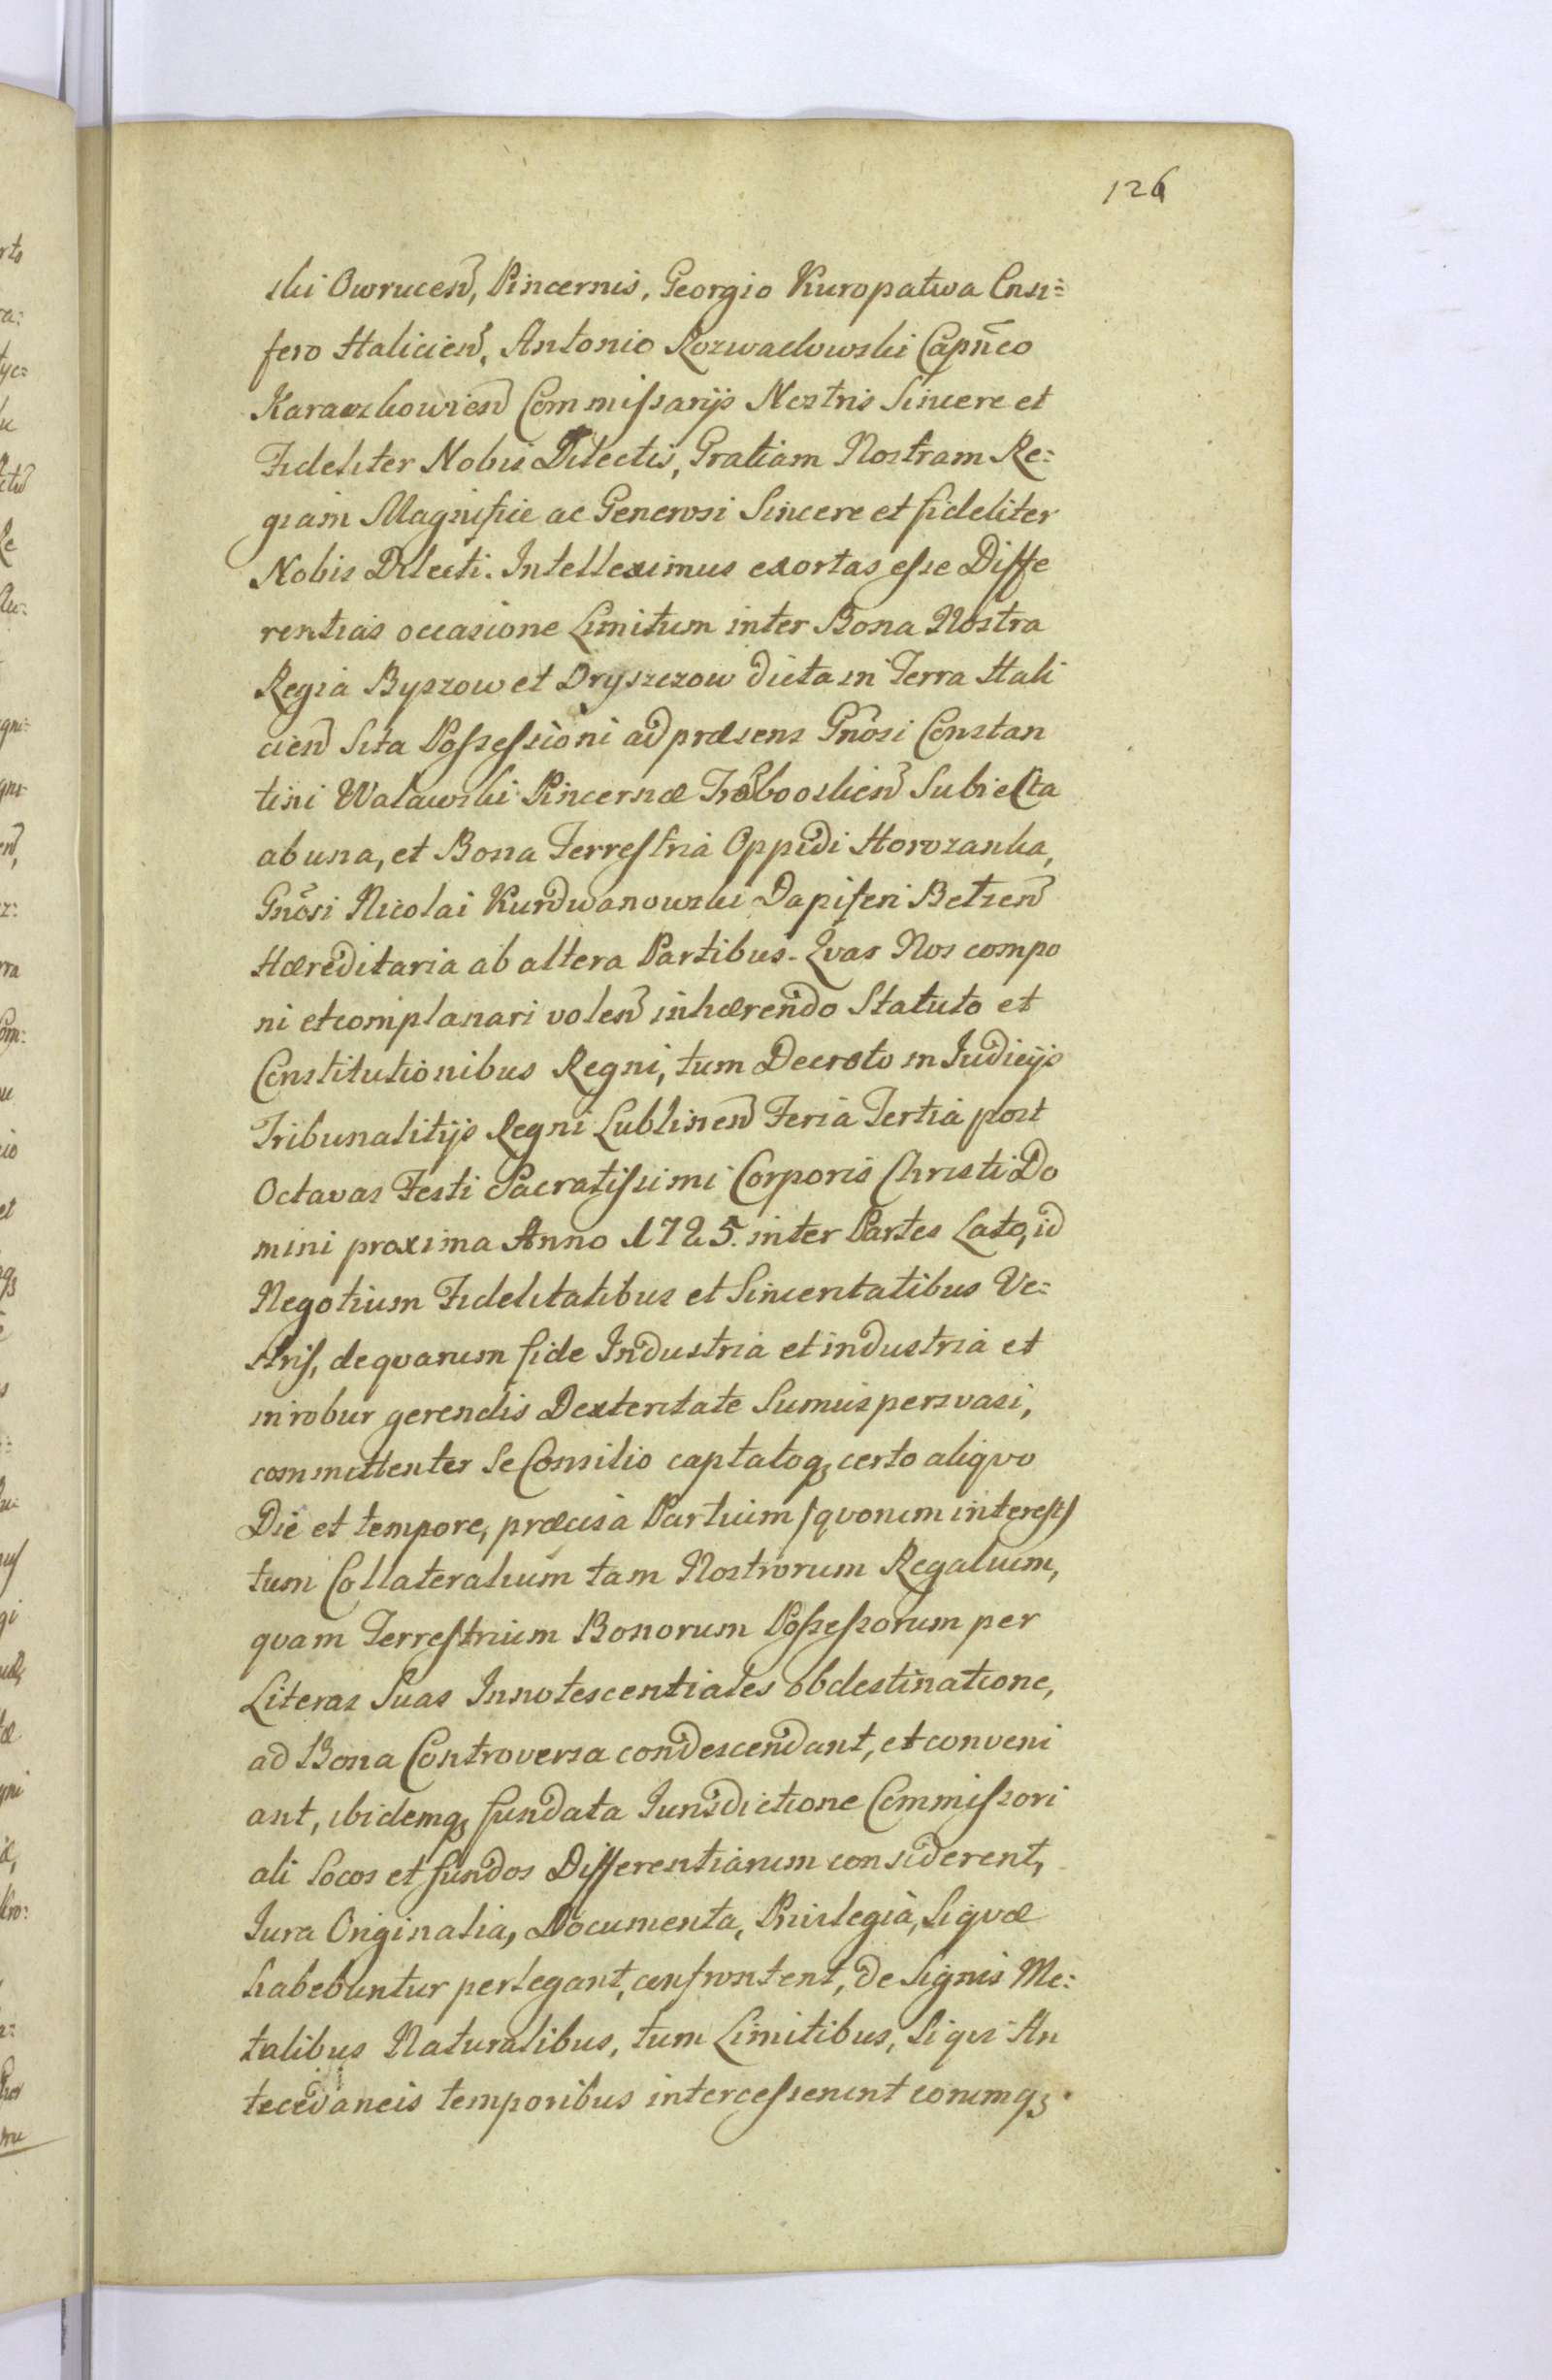 126
ski Owrucen, Pincernis, Georgio Kuropatwa Ensi=
fero Halicien, Antonio Rozwadowski Capneo
Karaczkowien Commissarijs Nostris Sincere et
Fideliter Nobis Dilectis, Gratiam Nostram Re=
giam Magnifici ac Generosi Sincere et fideliter
Nobis Dilecti. Intelleximus exortas esse Diffe
rentias occasione Limitum inter Bona Nostra
Regia Byszow et Dryszczow dicta in Terra Hali
cien Sita Possessioni ad præsens Gnosi Constan
tini Walawski Pincernæ Subiecta
ab una, et Bona Terrestria Oppidi Horozanka,
Gnosi Nicolai Kurdwanowski Dapiferi Betzen
Hæreditaria ab altera Partibus. Qvas Nos compo
ni et complanari volen inhærendo Statuto et
Constitutionibus Regni, tum Decreto in Judicijs
Tribunalitijs Regni Lublinen Feria Tertia post
Octavas Festi Sacratissimi Corporis Christi Do
mini proxima Anno 1725. inter Partes Lato, id
Negotium Fidelitatibus et Sinceritatibus Ve=
stris, de qvarum fide Industria et industria et
in robur gerendis Dexteritate Sumus persvasi,
committenter Se Consilio captatoq, certo aliqvo
Die et tempore, præcisa Partium /qvorum interest/
tum Collateralium tam Nostrorum Regalium,
qvam Terrestrium Bonorum Possessorum per
Literas Suas Innotescentiales obdestinatione,
ad Bona Controversa condescendant, et conveni
ant, ibidemq, fundata Jurisdictione Commissori
ali Locos et fundos Differentiarum considerent,
Jura Originalia, Documenta, Privilegia, Siqvæ
habebuntur perlegant, confrontent, de Signis Me=
talibus Naturalibus, tum Limitibus, Siqvi An
tecedaneis temporibus intercesserint eorumq,